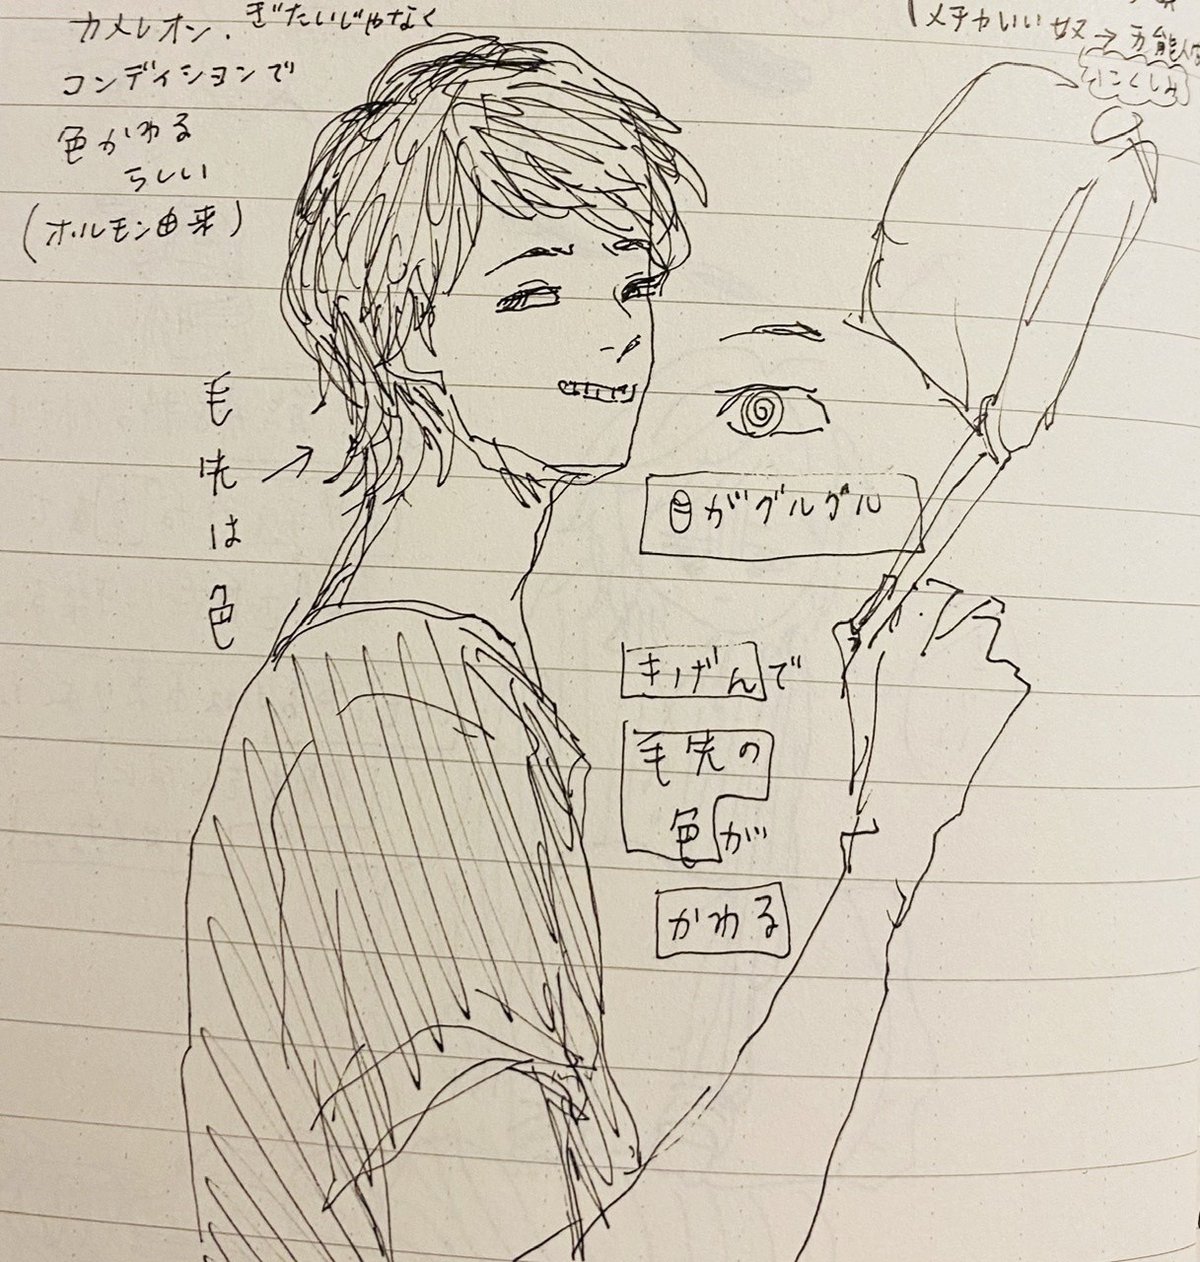 カメレオン.ぎたいじゃなく
コンディションで
色がかわる
らしい
(ホルモン由来)
メチャいい奴→万能
にくしみ
毛先は色
目がグルグル
きげんで
毛先の
色が
かわる